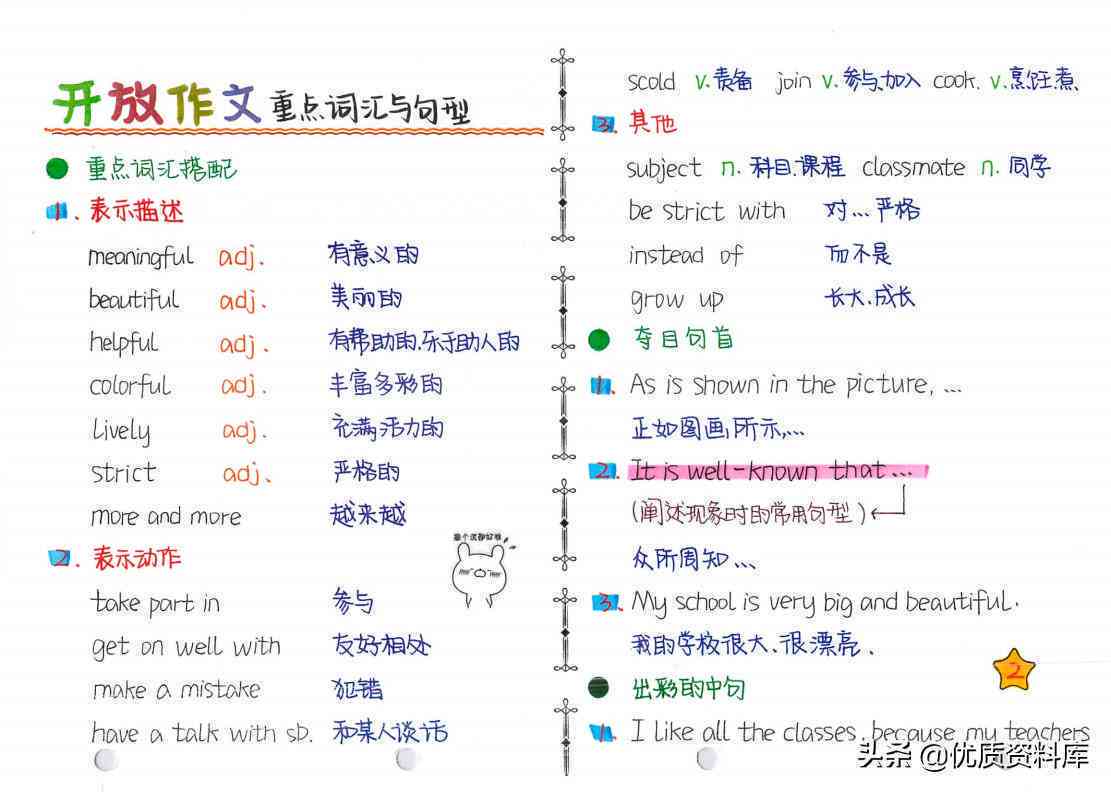 开放作文重点词汇与句型
重点词汇搭配
1. 表示描述
meaningful adj. 有意义的
beautiful adj. 美丽的
helpful adj. 有帮助的、乐于助人的
colorful adj. 丰富多彩的
lively adj. 充满活力的
strict adj. 严格的
more and more 越来越
2. 表示动作
take part in 参与
get on well with 友好相处
make a mistake 犯错
have a talk with sb. 和某人谈话
scold v.责备 join v.参与、加入 cook. v.烹饪.煮
3. 其他
subject n. 科目.课程 classmate n. 同学
be strict with 对...严格
instead of 而不是
grow up 长大.成长
夺目句首
1. As is shown in the picture, ...
正如图画所示,...
2. It is well-known that ...
(阐述现象时的常用句型)
众所周知...
3. My school is very big and beautiful.
我的学校很大、很漂亮.
2
出彩的中句
1. I like all the classes, because my teachers
头条 @优质资料库